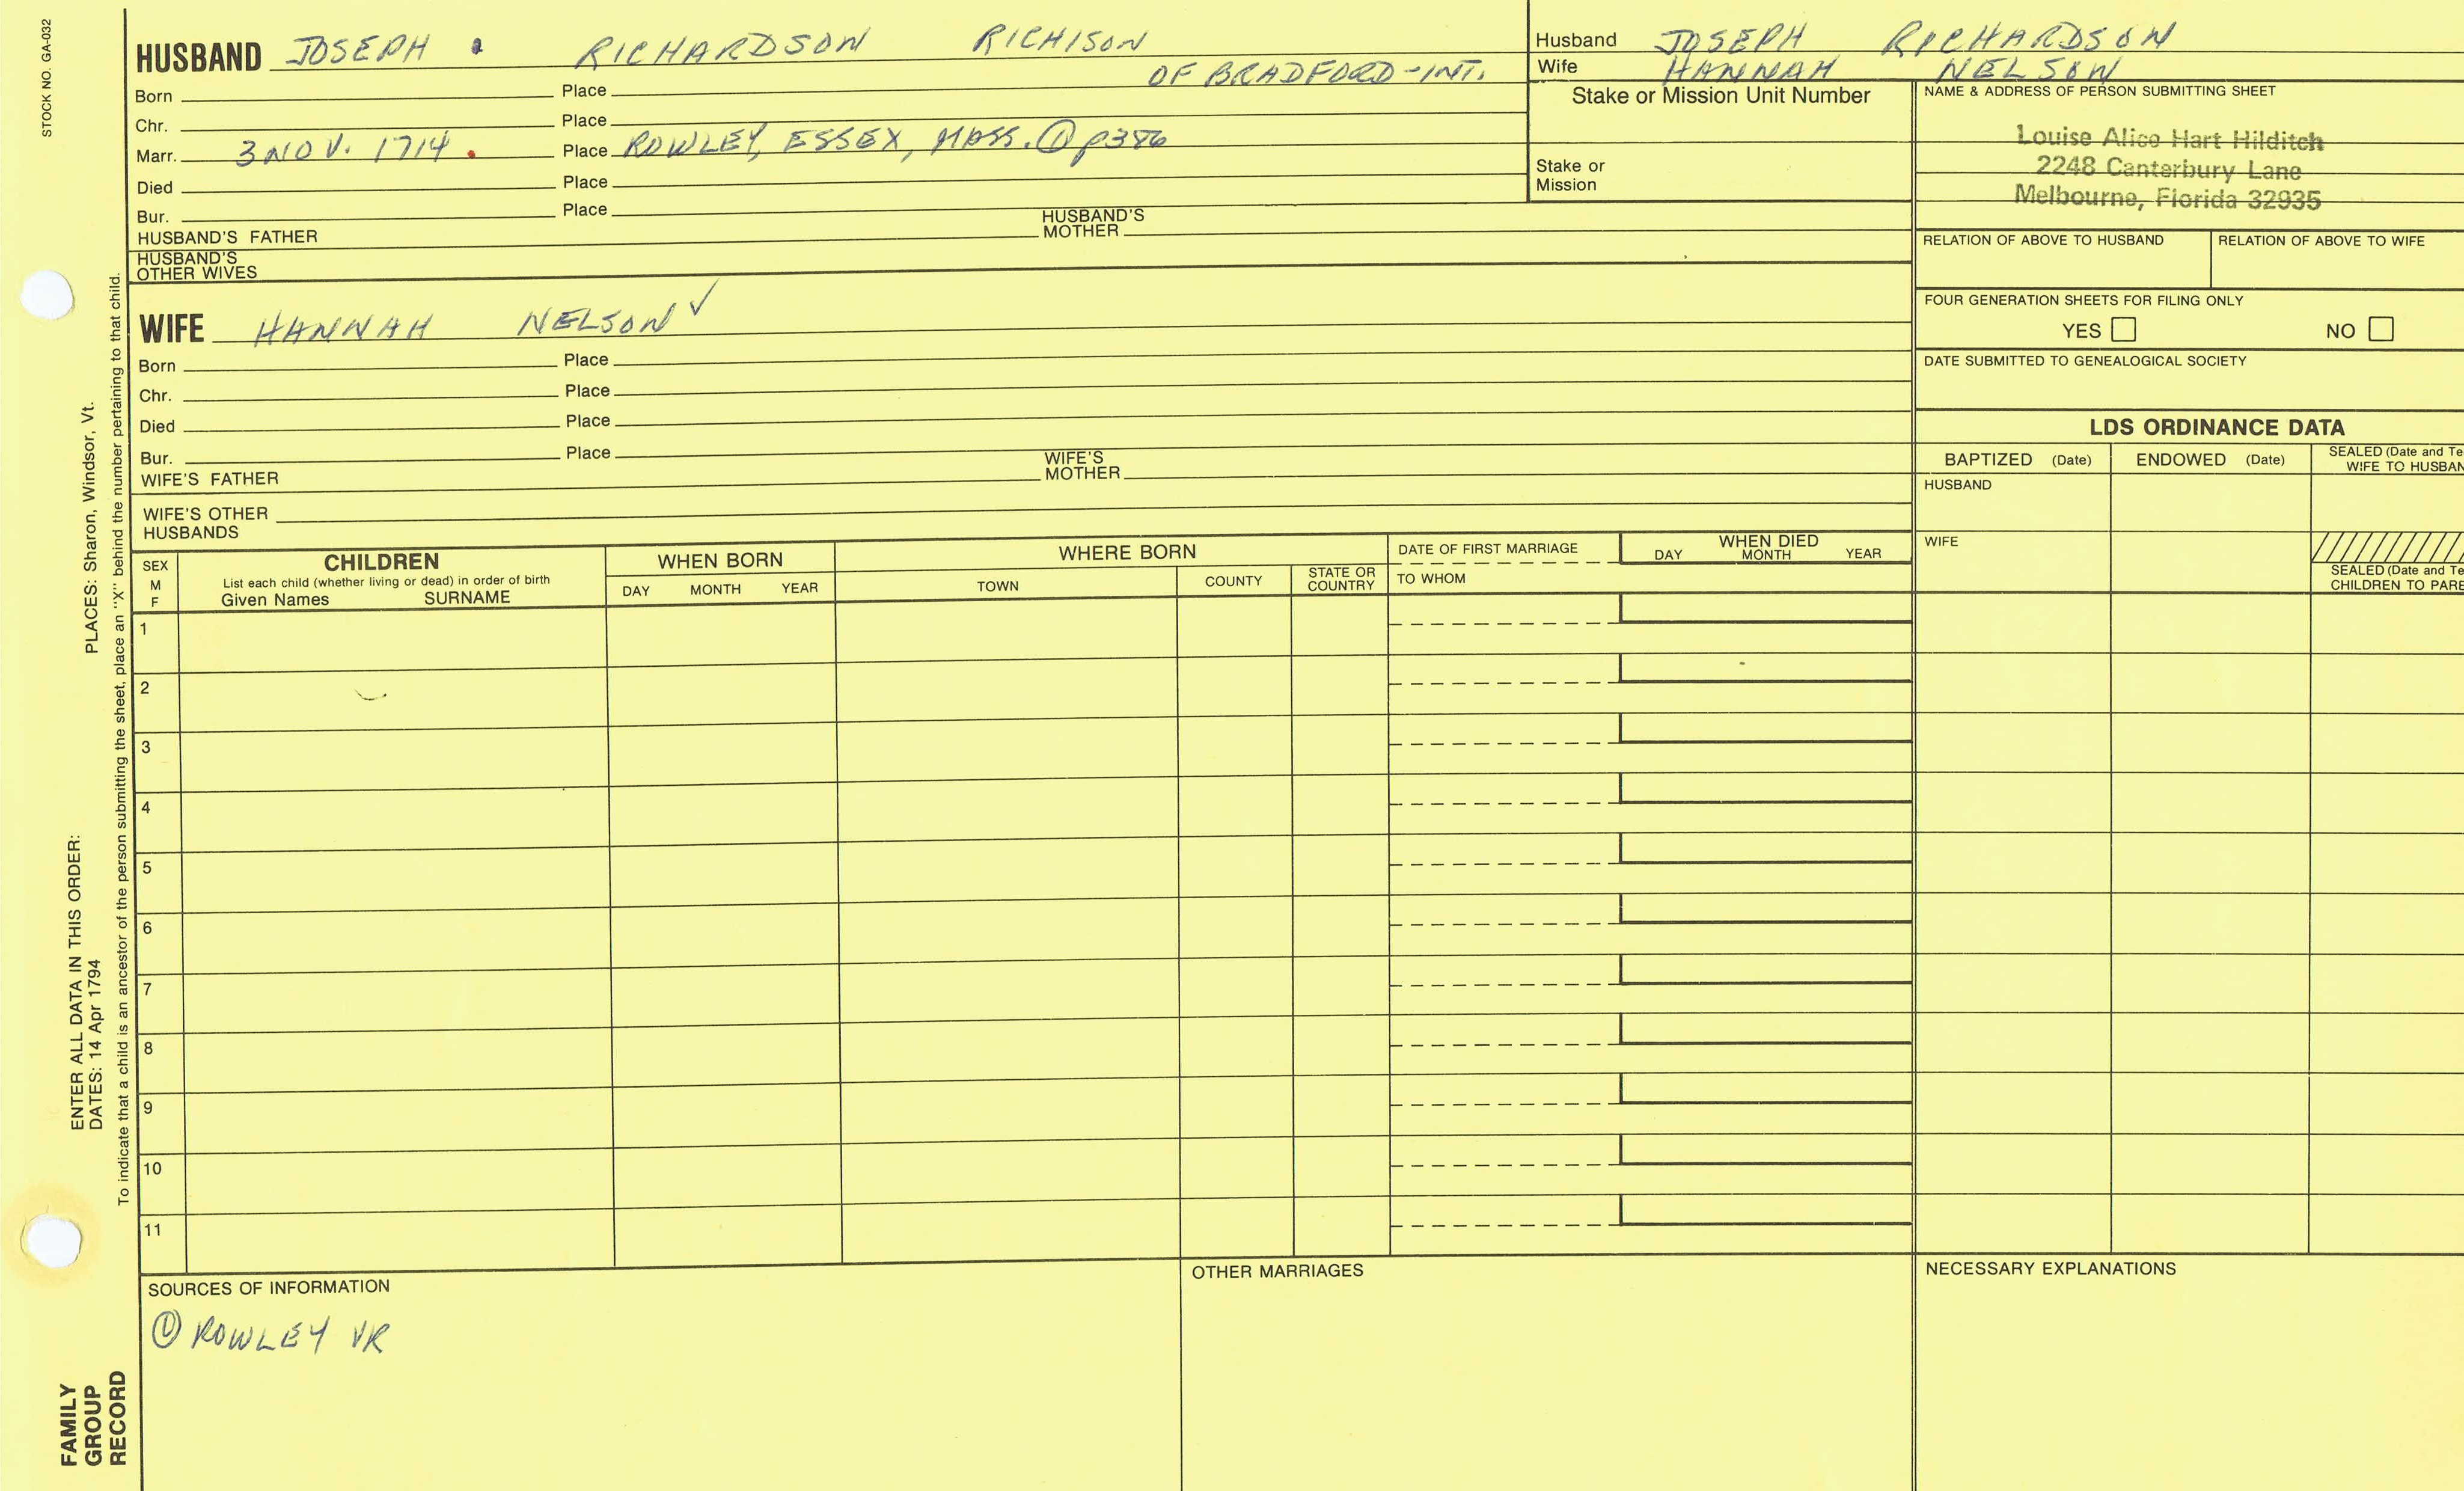 STOCK NO. GA-032
HUSBAND JOSEPH RICHARDSON RICHISON
OF BRADFORD-INT.
Born Place
Chr. Place
Marr. 3 NOV. 1714. Place ROWLEY, ESSEX, MASS. ① p386
Died Place
Bur. Place
HUSBAND'S FATHER HUSBAND'S MOTHER
HUSBAND'S
OTHER WIVES
Husband JOSEPH RICHARDSON
Wife HANNAH NELSON
Stake or Mission Unit Number
Stake or
Mission
NAME & ADDRESS OF PERSON SUBMITTING SHEET
Louise Alice Hart Hilditch
2248 Canterbury Lane
Melbourne, Florida 32935
RELATION OF ABOVE TO HUSBAND RELATION OF ABOVE TO WIFE
FOUR GENERATION SHEETS FOR FILING ONLY
YES NO
DATE SUBMITTED TO GENEALOGICAL SOCIETY
WIFE HANNAH NELSON ✓
Born Place
Chr. Place
Died Place
Bur. Place
WIFE'S FATHER WIFE'S MOTHER
WIFE'S OTHER
HUSBANDS
LDS ORDINANCE DATA
BAPTIZED (Date) ENDOWED (Date) SEALED (Date and Te
WIFE TO HUSBAN
HUSBAND
WIFE
SEALED (Date and Te
CHILDREN TO PARE
SEX
M
F
CHILDREN
List each child (whether living or dead) in order of birth
Given Names SURNAME
WHEN BORN
DAY MONTH YEAR
WHERE BORN
TOWN COUNTY STATE OR COUNTRY
DATE OF FIRST MARRIAGE
TO WHOM
WHEN DIED
DAY MONTH YEAR
1
2
3
4
5
6
7
8
9
10
11
SOURCES OF INFORMATION
① ROWLEY VR
OTHER MARRIAGES
NECESSARY EXPLANATIONS
PLACES: Sharon, Windsor, Vt.
ENTER ALL DATA IN THIS ORDER:
DATES: 14 Apr 1794
To indicate that a child is an ancestor of the person submitting the sheet, place an "X" behind the number pertaining to that child.
FAMILY
GROUP
RECORD